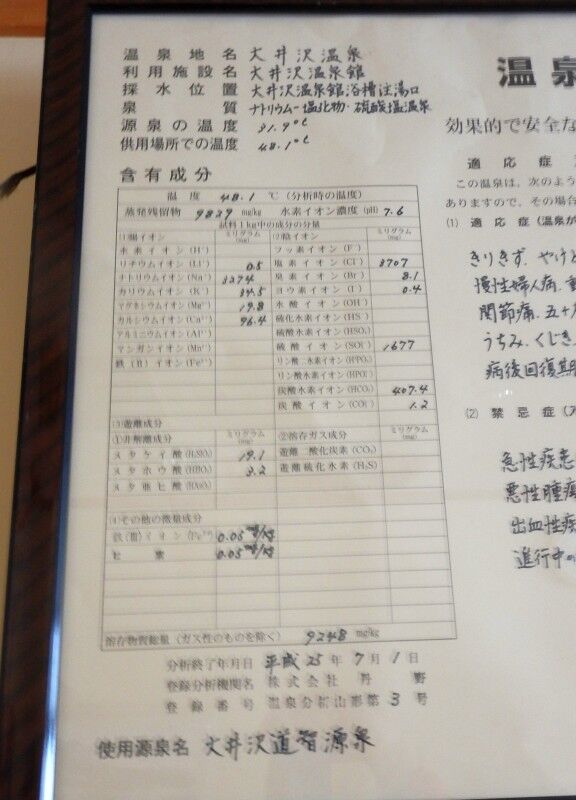 温泉地名 大井沢温泉
利用施設名 大井沢温泉館
採水位置 大井沢温泉館浴槽注湯口
泉質 ナトリウムー塩化物・硫酸塩温泉
源泉の温度 31.9℃
供用場所での温度 48.1℃
含有成分
温度 48.1 ℃ (分析時の温度)
蒸発残留物 9839 mg/kg 水素イオン濃度 (pH) 7.6
試料1kg中の成分の分量
(1)陽イオン ミリグラム (mg) (2)陰イオン ミリグラム (mg)
水素イオン (H⁺) フッ素イオン (F⁻)
リチウムイオン (Li⁺) 0.5 塩素イオン (Cl⁻) 3707
ナトリウムイオン (Na⁺) 3274 臭素イオン (Br⁻) 8.1
カリウムイオン (K⁺) 34.5 ヨウ素イオン (I⁻) 0.4
マグネシウムイオン (Mg²⁺) 19.8 水酸イオン (OH⁻)
カルシウムイオン (Ca²⁺) 96.4 硫化水素イオン (HS⁻)
アルミニウムイオン (Al³⁺) 硫酸水素イオン (HSO₄⁻)
マンガンイオン (Mn²⁺) 硫酸イオン (SO₄²⁻) 1677
鉄(II)イオン (Fe²⁺) リン酸二水素イオン (H₂PO₄⁻)
リン酸水素イオン (HPO₄²⁻)
炭酸水素イオン (HCO₃⁻) 407.4
炭酸イオン (CO₃²⁻) 1.2
(3)遊離成分
①非解離成分 ミリグラム (mg) ②溶存ガス成分 ミリグラム (mg)
メタケイ酸 (H₂SiO₃) 19.1 遊離二酸化炭素 (CO₂)
メタホウ酸 (HBO₂) 3.2 遊離硫化水素 (H₂S)
メタ亜ヒ酸 (HAsO₂)
(4)その他の微量成分
鉄(III)イオン (Fe³⁺) 0.05 mg/kg
ヒ素 0.05 mg/kg
溶存物質総量 (ガス性のものを除く) 9248 mg/kg
分析終了年月日 平成25年7月1日
登録分析機関名 株式会社 丹野
登録番号 温泉分析山形第3号
使用源泉名 大井沢道智源泉
温泉
効果的で安全な
適応症
この温泉は、次のよう
ありますので、その場合
(1) 適応症 (温泉が
きりきず、やけど
慢性婦人病、
関節痛、五十
うちみ、くじき
病後回復期
(2) 禁忌症 (
急性疾患
悪性腫瘍
出血性疾
進行中の